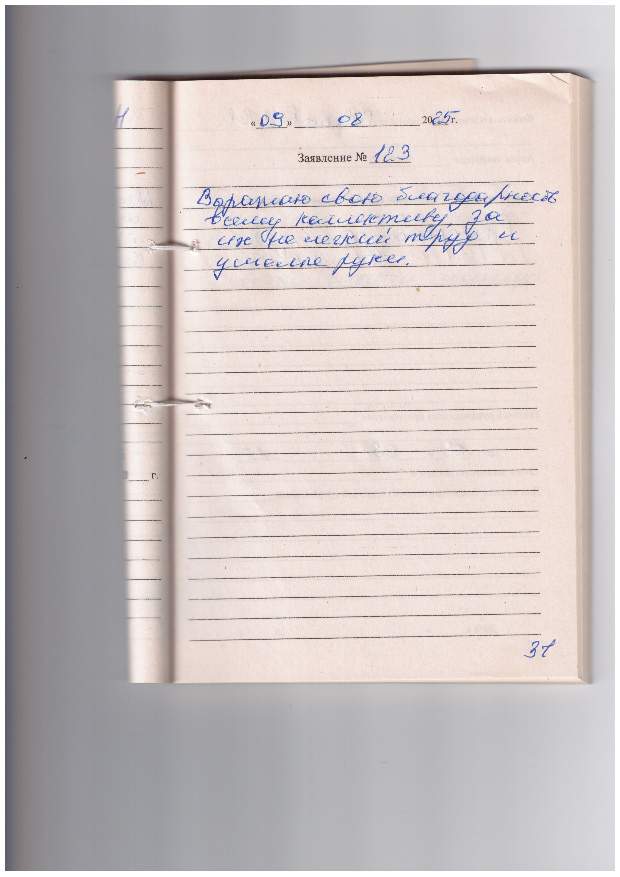 « 09 » 08 2025г.
Заявление № 123
Выражаю свою благодарность
всему коллективу за
их не легкий труд и
умелые руки.
г.
31